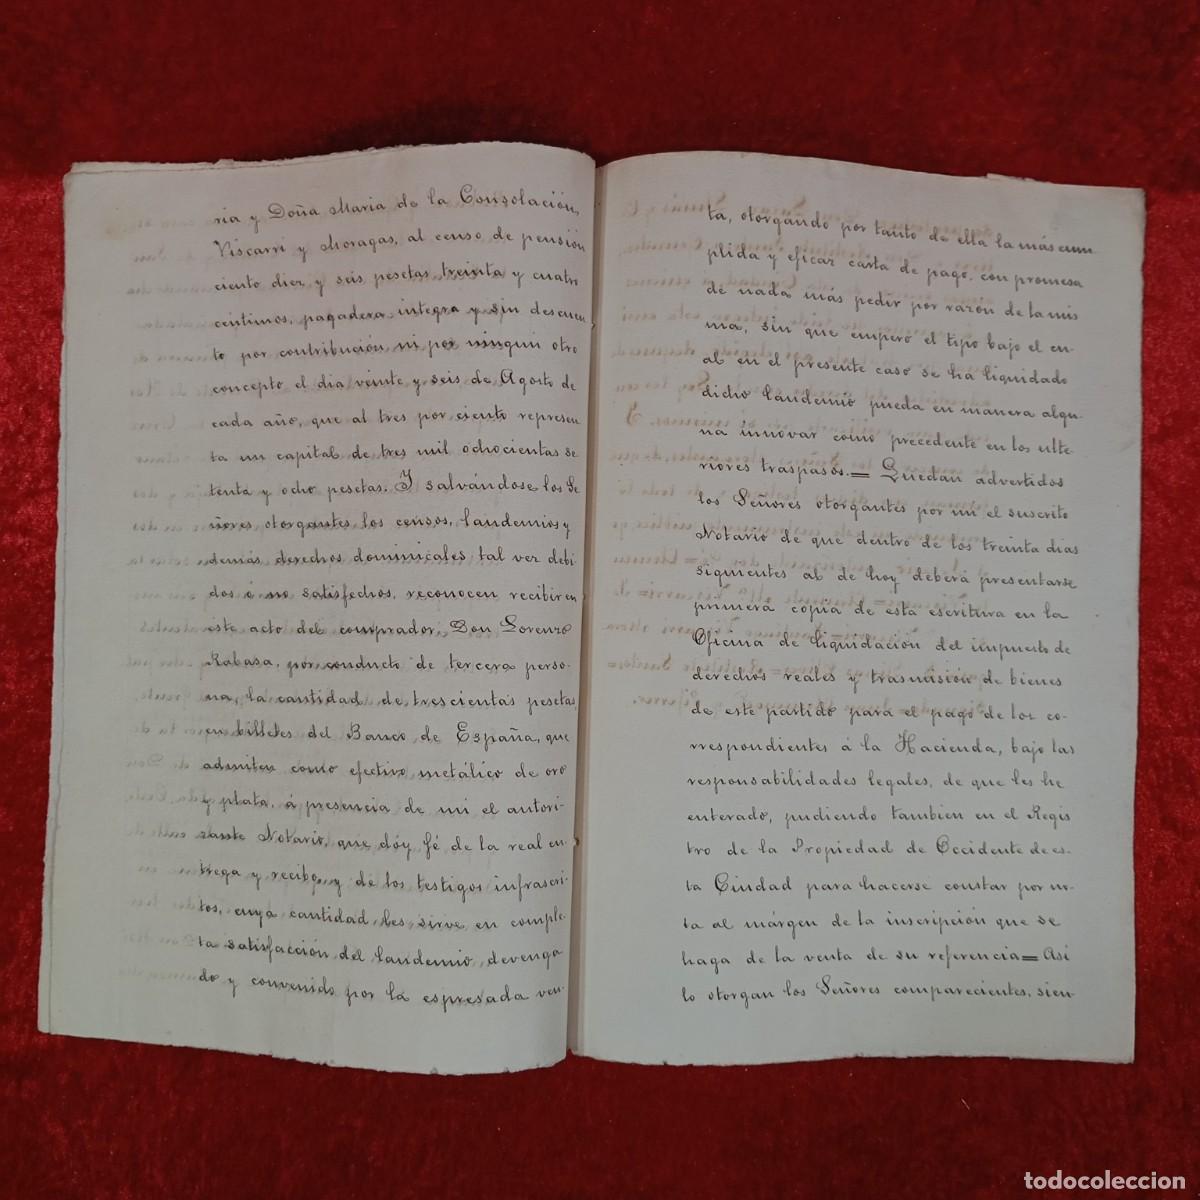 ria y Doña Maria de la Consolación,
Viscarri y Moragas, al censo de pensión
ciento diez y seis pesetas treinta y cuatro
centimos, pagadera integra y sin descuen
to por contribución ni por ningun otro
concepto el dia veinte y seis de Agosto de
cada año, que al tres por ciento represen
ta un capital de tres mil ochocientas se
tenta y ocho pesetas. Y salvándose los Se
ñores otorgantes los censos, laudemios y
demás derechos dominicales tal vez debi
dos é no satisfechos, reconocen recibir en
este acto del comprador, Don Lorenzo
Rabasa, por conducto de tercera perso-
na, la cantidad de trescientas pesetas,
en billetes del Banco de España, que
admiten como efectivo metálico de oro
y plata, á presencia de mi el autori-
zante Notario, que dóy fé de la real en
trega y recibo, y de los testigos infrascri-
tos, cuya cantidad les sirve en comple-
ta satisfacción del laudemio, devenga
do y convenido por la espresada ven-
ta, otorgando por tanto de ella la más cum
plida y eficaz carta de pago, con promesa
de nada más pedir por razón de la mis
ma, sin que empero el tipo bajo el cu-
al en el presente caso se ha liquidado
dicho laudemio pueda en manera algu-
na innovar como precedente en los ulte-
riores traspasos.= Quedan advertidos
los Señores otorgantes por mi el suscrito
Notario de que dentro de los treinta dias
siguientes al de hoy deberá presentarse
primera copia de esta escritura en la
Oficina de liquidación del impuesto de
derechos reales y trasmisión de bienes
de este partido para el pago de los co-
rrespondientes á la Hacienda, bajo las
responsabilidades legales, de que les he
enterado, pudiendo tambien en el Regis
tro de la Propiedad de Occidente de es-
ta Ciudad para hacerse constar por no-
ta al márgen de la inscripción que se
haga de la venta de su referencia= Asi
lo otorgan los Señores comparecientes, sien-
todocoleccion